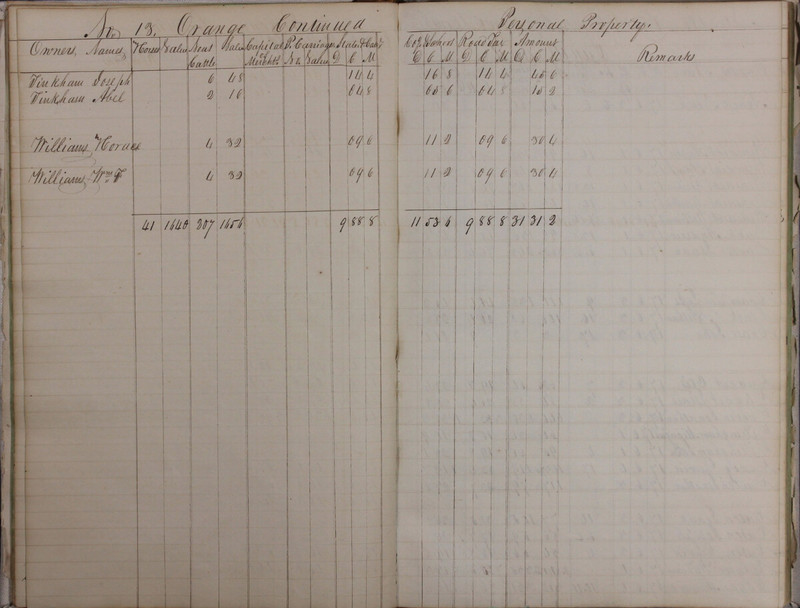 No. 13. Orange Continued Personal Property.
Owners Names Horses Value Neat Cattle Value Capital Merchts P. Carriages No. Value State & Cant'y D C M Co. & School C C M Road Tax D C M Amount D C M Remarks
Tinkham Joseph 6 48 14 4 16 8 14 4 45 6
Tinkham Abel 2 16 04 8 05 6 04 8 15 2
Williams Horace 4 32 09 6 11 2 09 6 30 4
Williams Wm F 4 32 09 6 11 2 09 6 30 4
41 1640 307 1656 9 88 8 11 53 6 9 88 8 31 31 2